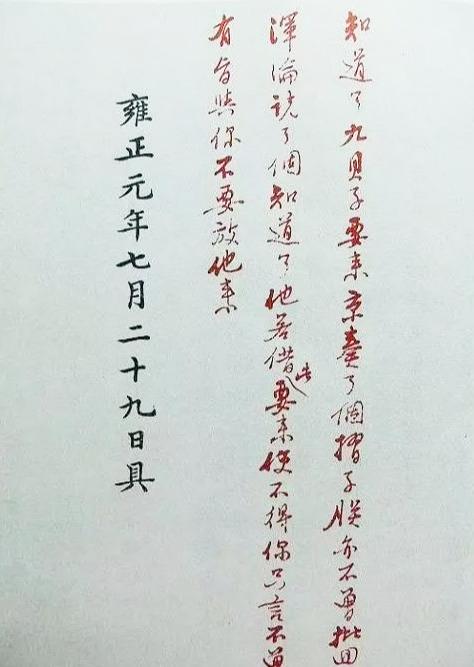 知道了九貝子要來京奏了個摺子朕亦不曾批回
渾淪說了個知道了他若借此要來使不得你只言不曾
有旨與你不要放他來
雍正元年七月二十九日具